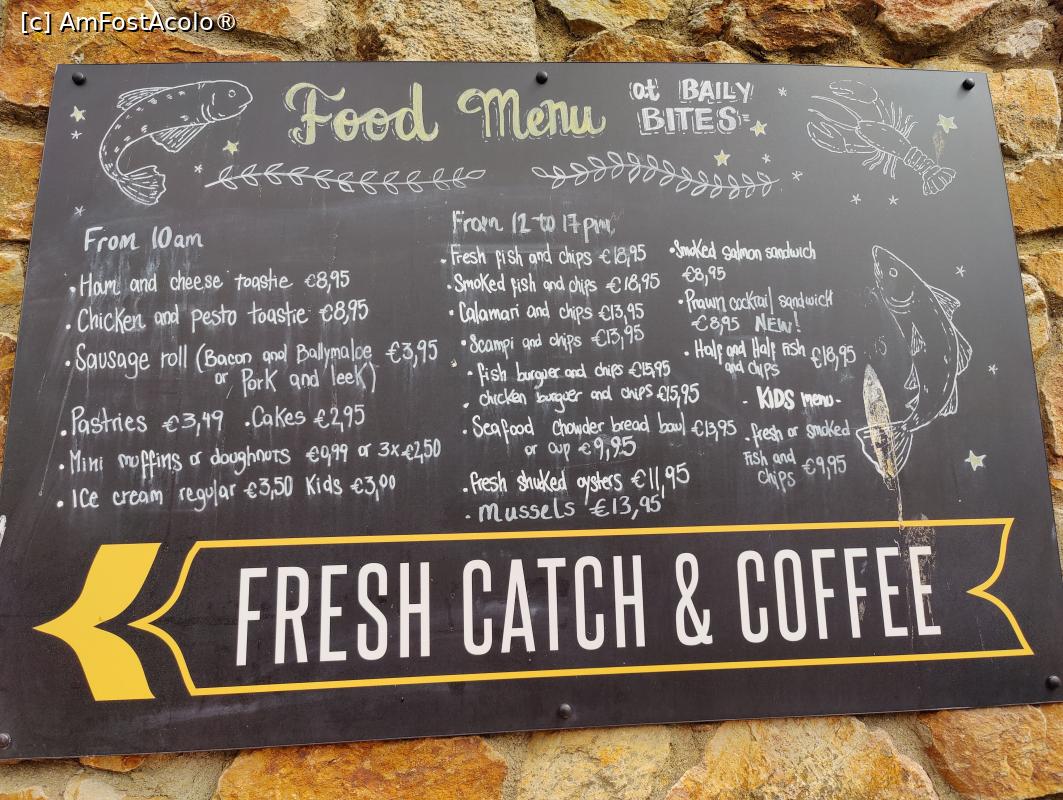 [c] AmFostAcolo®
Food Menu
at BAILY
BITES
From 10am
• Ham and cheese toastie €8,95
• Chicken and pesto toastie €8,95
• Sausage roll (Bacon and Ballymaloe €3,95
or Pork and leek)
• Pastries €3,49 • Cakes €2,95
• Mini muffins or doughnuts €0,99 or 3x€2,50
• Ice cream regular €3,50 Kids €3,00
From 12 to 17 pm
• Fresh fish and chips €18,95
• Smoked fish and chips €18,95
• Calamari and chips €13,95
• Scampi and chips €13,95
• Fish burguer and chips €15,95
• chicken burguer and chips €15,95
• Seafood chowder bread bowl €13,95
or cup €9,95
• Fresh shuked oysters €11,95
• Mussels €13,95
• Smoked salmon sandwich
€8,95
• Prawn cocktail sandwich
€8,95 NEW!
• Half and Half Fish €18,95
and chips
- KIDS menu -
• fresh or smoked
Fish and
chips €9,95
FRESH CATCH & COFFEE